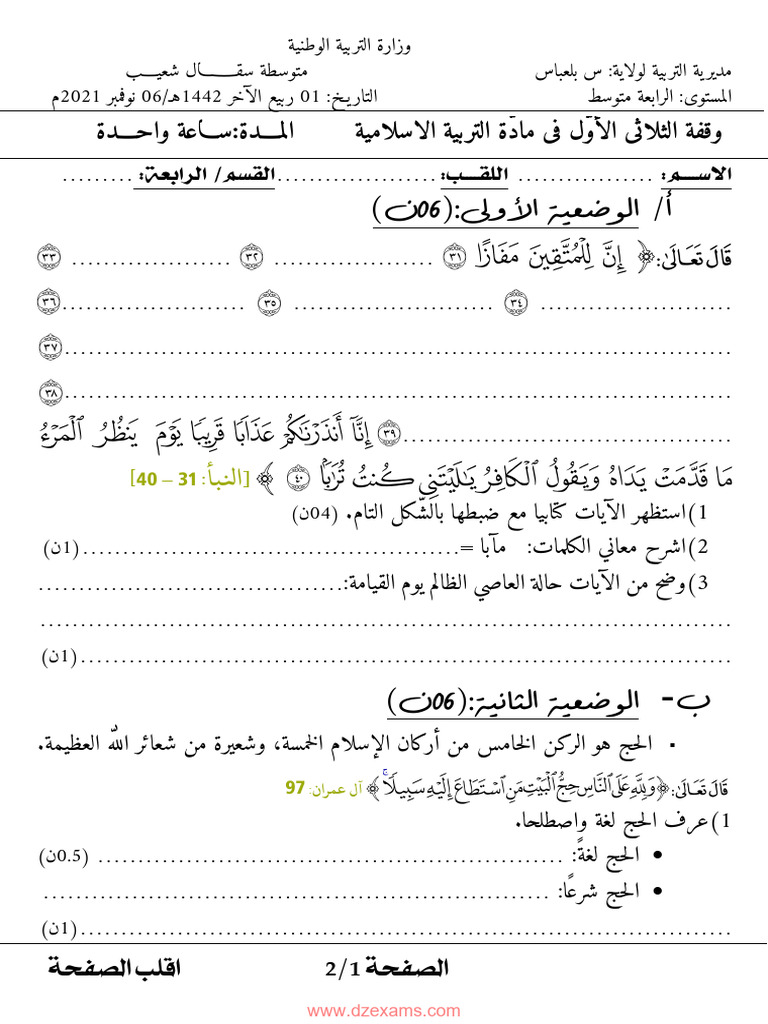 وزارة التربية الوطنية
مديرية التربية لولاية: س بلعباس متوسطة سقـــــال شعيـــب
المستوى: الرابعة متوسط التاريخ: 01 ربيع الآخر 1442هـ/06 نوفمبر 2021م
وقفة الثلاثي الأوّل في مادّة التربية الاسلامية المــدة:ساعة واحــدة
الاســم: ................. اللقــب: .................... القسم/ الرابعة: .........
أ/ الوضعية الأولى:(06ن)
قَالَ تَعَالَىٰ: ﴿ إِنَّ لِلْمُتَّقِينَ مَفَازًا ٣١ .................... ٣٢ .................... ٣٣
........................ ٣٤ ......................... ٣٥ ....................... ٣٦
.................................................................................... ٣٧
.................................................................................... ٣٨
......................................... ٣٩ إِنَّآ أَنذَرْنَٰكُمْ عَذَابًا قَرِيبًا يَوْمَ يَنظُرُ الْمَرْءُ
مَا قَدَّمَتْ يَدَاهُ وَيَقُولُ الْكَافِرُ يَٰلَيْتَنِي كُنتُ تُرَٰبًۢا ٤٠ ﴾ [النبأ: 31 – 40]
1)استظهر الآيات كتابيا مع ضبطها بالشّكل التام. (04ن)
2)اشرح معاني الكلمات: مآبا =............................................... (1ن)
3)وضح من الآيات حالة العاصي الظالم يوم القيامة:......................................
.......................................................................................
.................................................................................. (1ن)
ب- الوضعية الثانية:(06ن)
▪ الحج هو الركن الخامس من أركان الإسلام الخمسة، وشعيرة من شعائر الله العظيمة.
قَالَ تَعَالَىٰ: ﴿وَلِلَّهِ عَلَى النَّاسِ حِجُّ الْبَيْتِ مَنِ اسْتَطَاعَ إِلَيْهِ سَبِيلًاۚ ﴾ آل عمران: 97
1)عرف الحج لغة واصطلحا.
• الحج لغةً: .......................................................... (0.5ن)
• الحج شرعًا: ...............................................................
.................................................................................. (1ن)
الصفحة 2/1 اقلب الصفحة
www.dzexams.com